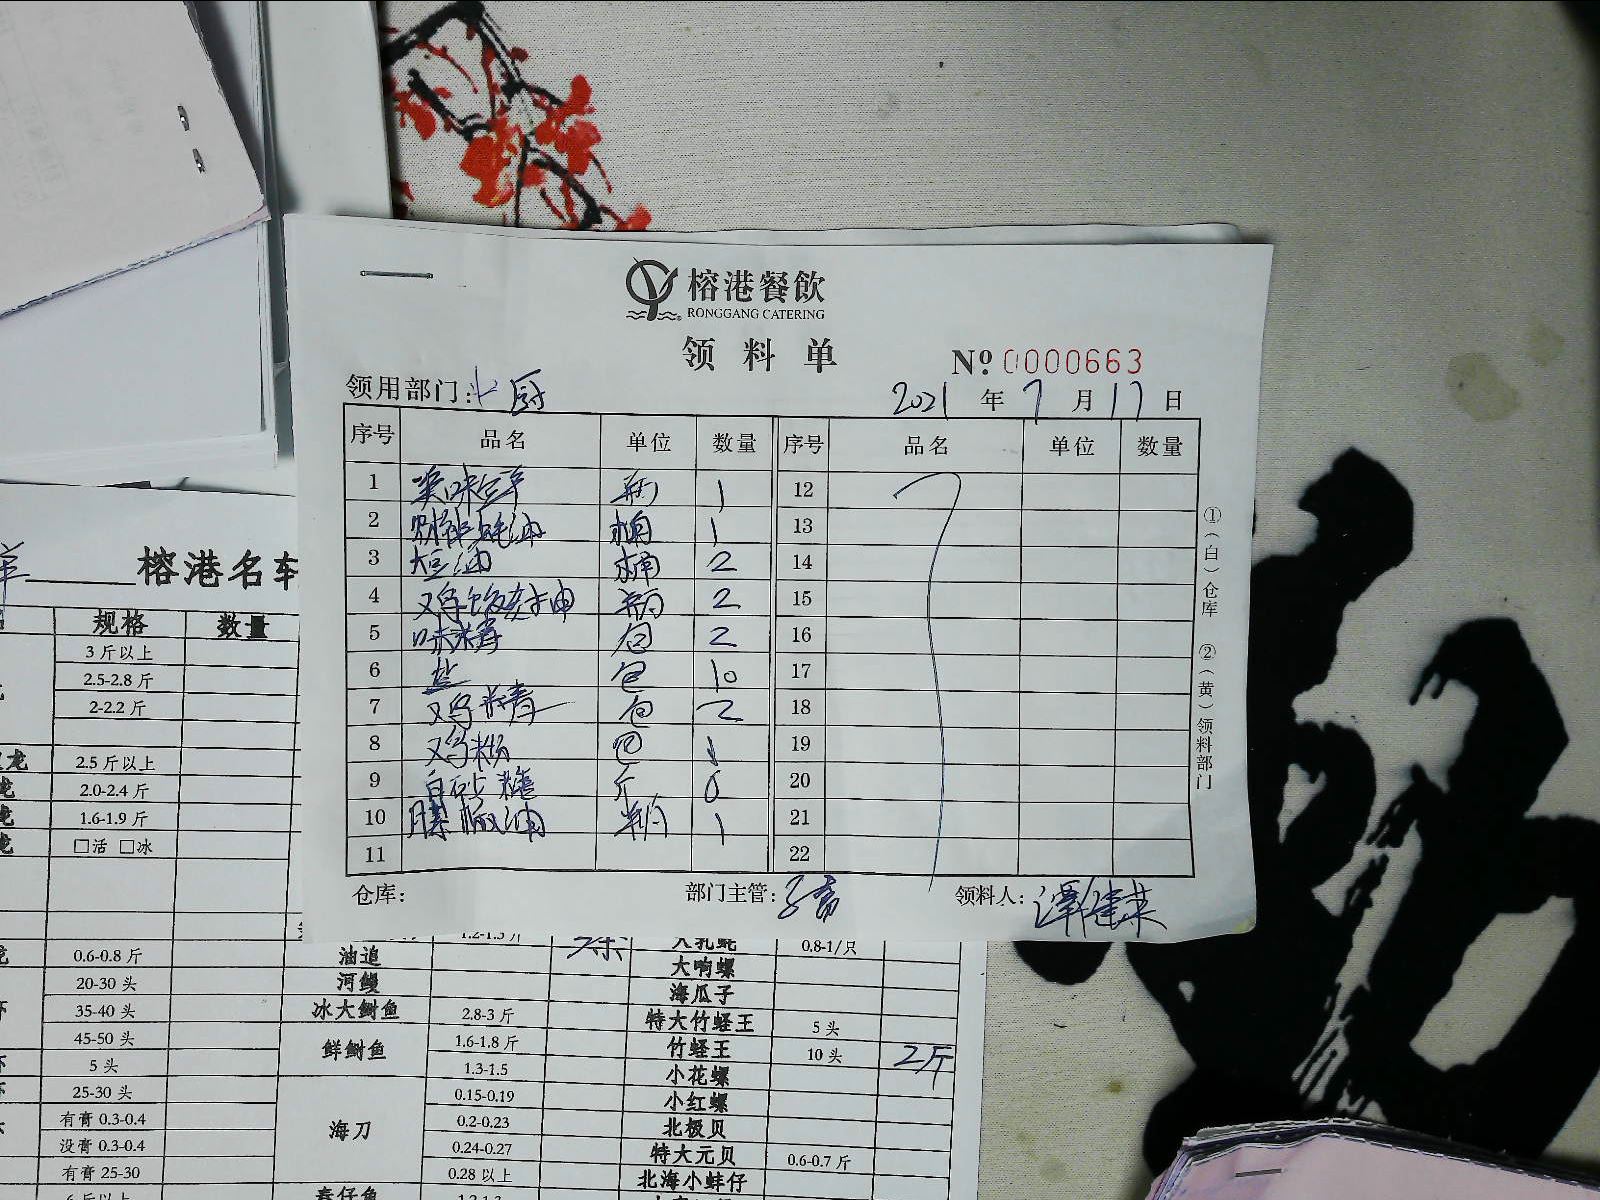 榕港餐飲
RONGGANG CATERING
领料单
№ 0000663
领用部门: 厨
2021 年 7 月 17 日
序号 品名 单位 数量 序号 品名 单位 数量
1 瓶 1 12
2 财神蚝油 桶 1 13
3 大豆油 桶 2 14
4 鸡饭老抽 瓶 2 15
5 味精 包 2 16
6 盐 包 10 17
7 鸡精 包 2 18
8 鸡粉 包 1 19
9 白砂糖 斤 6 20
10 瓶 1 21
11 22
仓库: 部门主管: 领料人:
①(白)仓库 ②(黄)领料部门
榕港名轩
规格 数量
3 斤以上
2.5-2.8 斤
2-2.2 斤
龙 2.5 斤以上
龙 2.0-2.4 斤
龙 1.6-1.9 斤
龙 □活 □冰
1.2-1.5 斤 0.8-1/只
龙 0.6-0.8 斤 油追 大响螺
20-30 头 河鳗 海瓜子
35-40 头 冰大鲥鱼 2.8-3 斤 特大竹蛏王 5 头
45-50 头 鲜鲥鱼 1.6-1.8 斤 竹蛏王 10 头 2斤
5 头 1.3-1.5 小花螺
25-30 头 海刀 0.15-0.19 小红螺
有膏 0.3-0.4 0.2-0.23 北极贝
没膏 0.3-0.4 0.24-0.27 特大元贝 0.6-0.7 斤
有膏 25-30 0.28 以上 北海小蚌仔
春仔鱼